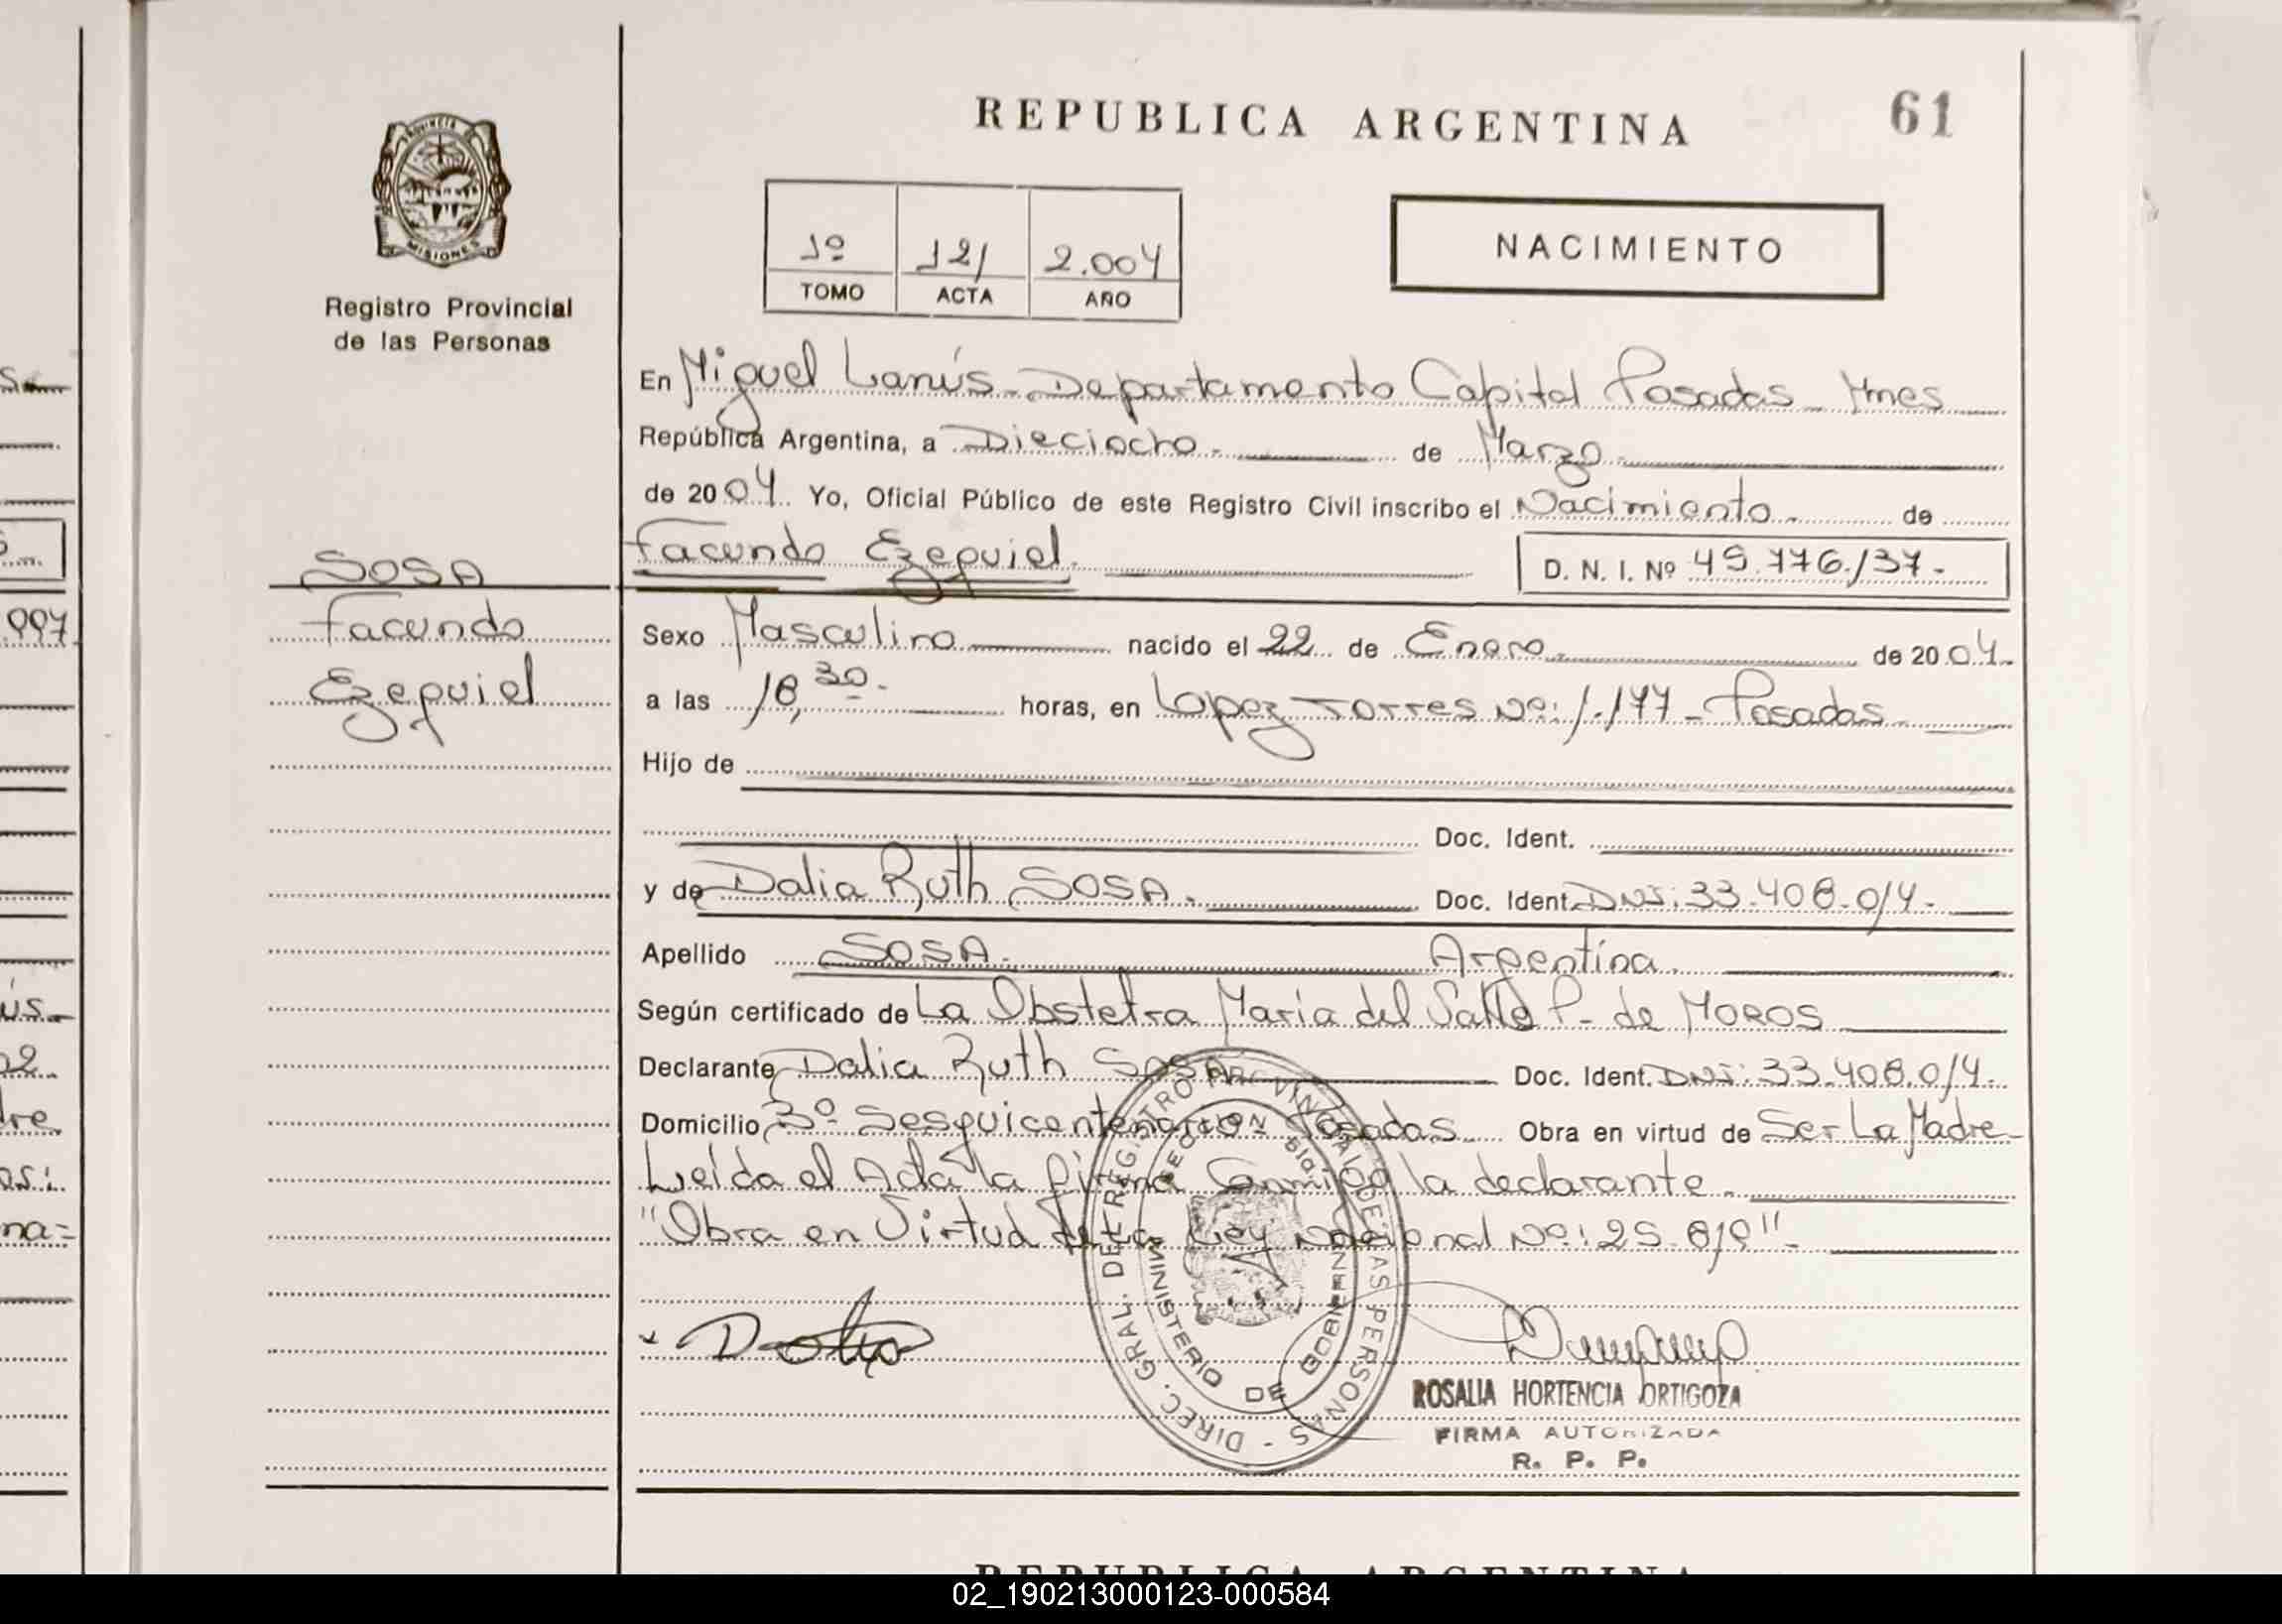 REPUBLICA ARGENTINA
61
PROVINCIA DE
MISIONES
Registro Provincial
de las Personas
1º 121 2.004
TOMO ACTA AÑO
NACIMIENTO
En Miguel Lanús - Departamento Capital Posadas - Mnes
República Argentina, a Dieciocho.- de Marzo
de 2004. Yo, Oficial Público de este Registro Civil inscribo el Nacimiento.- de
Facundo Ezequiel.
D. N. I. Nº 45.776.137.-
SOSA
Facundo
Ezequiel
Sexo Masculino nacido el 22 de Enero. de 2004.
a las 18,30.- horas, en Lopez Torres Nº: 1.177 - Posadas.
Hijo de
Doc. Ident.
y de Dalia Ruth SOSA. Doc. Ident. DNI: 33.408.014.-
Apellido SOSA. Argentina.
Según certificado de La Obstetra María del Valle P. de MOROS
Declarante Dalia Ruth SOSA Doc. Ident. DNI: 33.408.014.-
Domicilio Bº Sesquicentenario - Posadas. Obra en virtud de Ser La Madre
Leída el Acta la firma Conmigo la declarante.
"Obra en Virtud de La Ley Nacional Nº: 25.819".-
DIREC. GRAL. DEL REGISTRO PROVINCIAL DE LAS PERSONAS -
MINISTERIO DE GOBIERNO
ROSALIA HORTENCIA ORTIGOZA
FIRMA AUTORIZADA
R. P. P.
REPUBLICA ARGENTINA
02_190213000123-000584